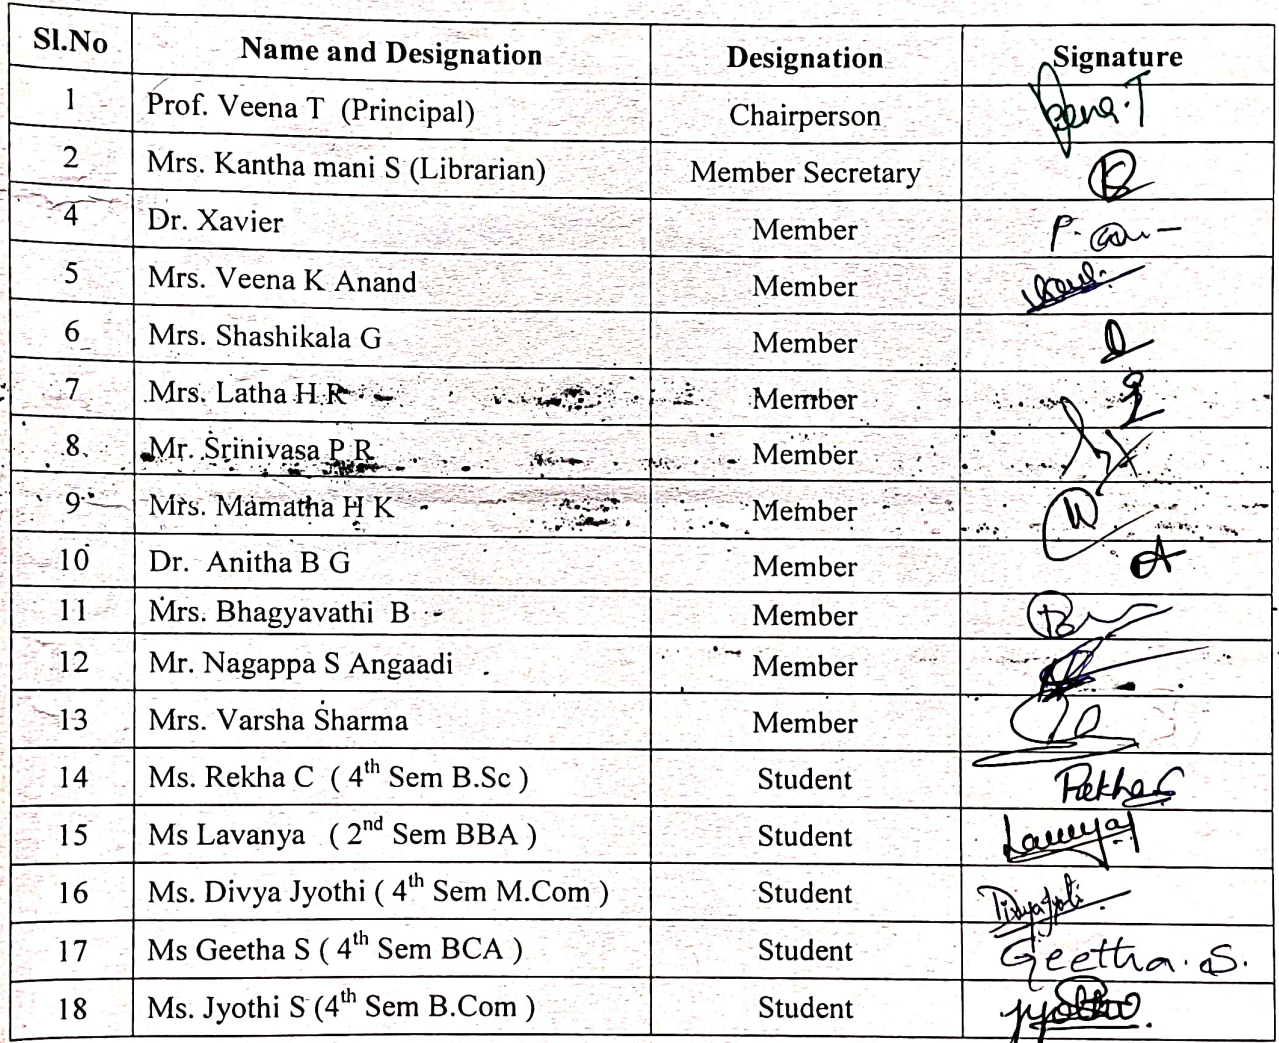 Sl.No Name and Designation Designation Signature
1 Prof. Veena T (Principal) Chairperson Veena.T
2 Mrs. Kantha mani S (Librarian) Member Secretary
4 Dr. Xavier Member
5 Mrs. Veena K Anand Member
6 Mrs. Shashikala G Member
7 Mrs. Latha H R Member
8 Mr. Srinivasa P R Member
9 Mrs. Mamatha H K Member
10 Dr. Anitha B G Member
11 Mrs. Bhagyavathi B Member
12 Mr. Nagappa S Angaadi Member
13 Mrs. Varsha Sharma Member
14 Ms. Rekha C ( 4th Sem B.Sc ) Student Rekha C
15 Ms Lavanya ( 2nd Sem BBA ) Student
16 Ms. Divya Jyothi ( 4th Sem M.Com ) Student
17 Ms Geetha S ( 4th Sem BCA ) Student Geetha. S.
18 Ms. Jyothi S (4th Sem B.Com ) Student